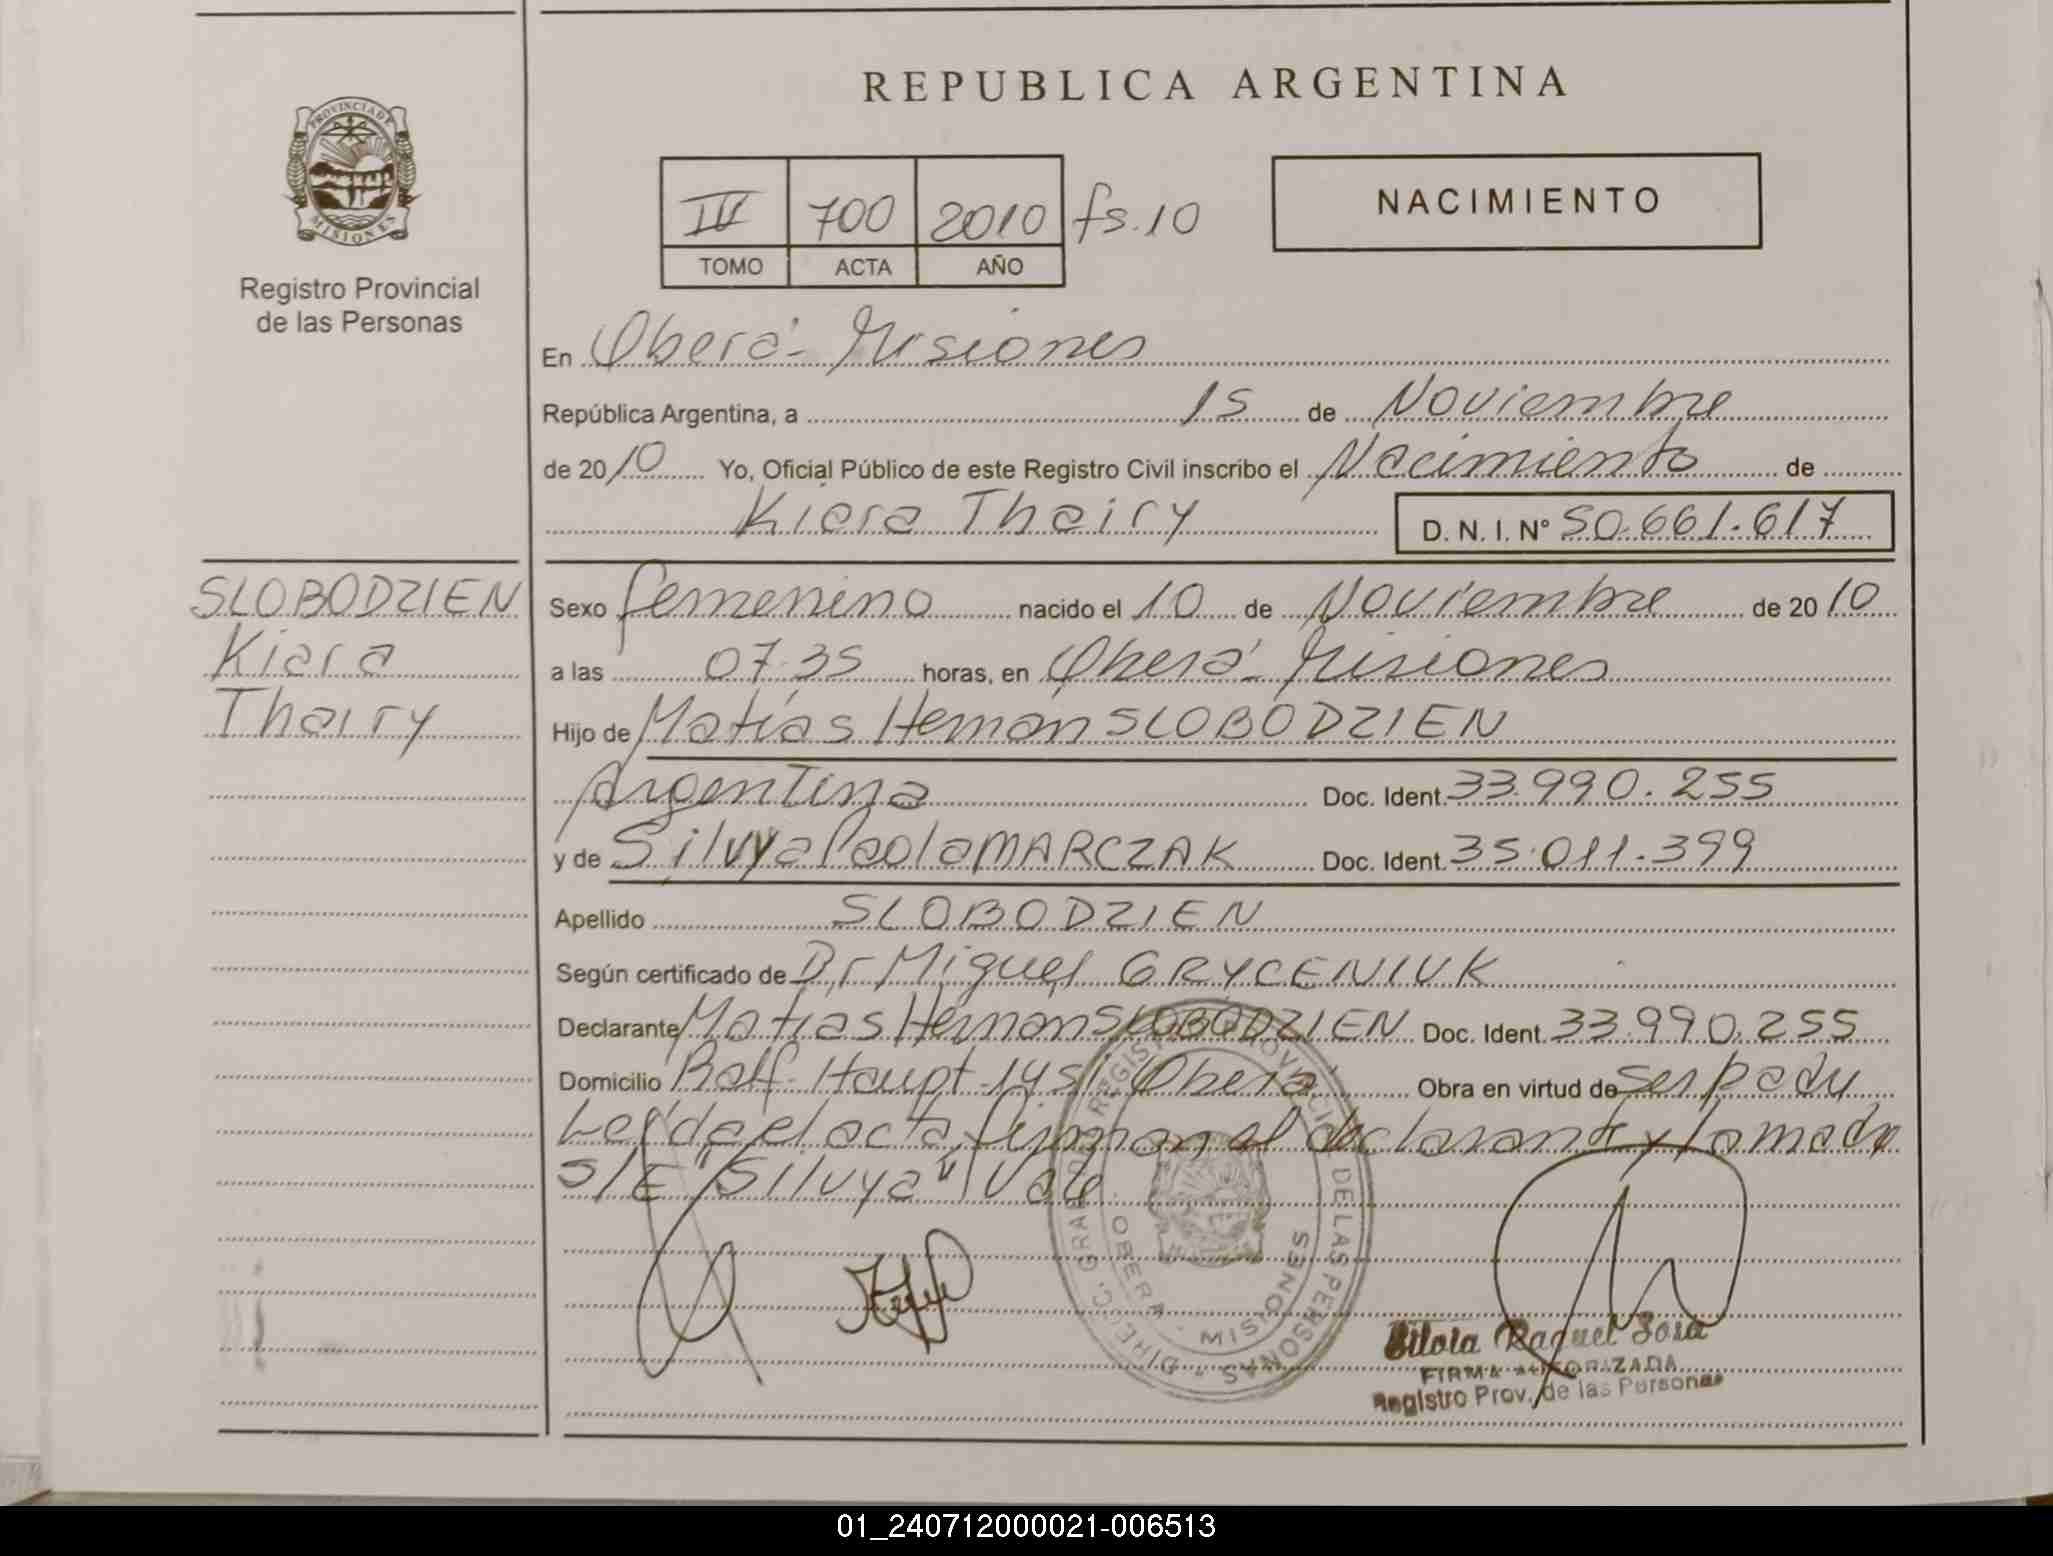 REPUBLICA ARGENTINA
PROVINCIA DE
MISIONES
Registro Provincial
de las Personas
IV 700 2010 fs.10
TOMO ACTA AÑO
NACIMIENTO
En Oberá - Misiones
República Argentina, a 15 de Noviembre
de 2010 Yo, Oficial Público de este Registro Civil inscribo el Nacimiento de
Kiara Thairy D. N. I. Nº 50.661.617
SLOBODZIEN
Kiara
Thairy
Sexo femenino nacido el 10 de Noviembre de 2010
a las 07.35 horas, en Oberá - Misiones
Hijo de Matías Hernan SLOBODZIEN
Argentina Doc. Ident. 33.990.255
y de Silvya Paola MARCZAK Doc. Ident. 35.011.399
Apellido SLOBODZIEN
Según certificado de Dr Miguel GRYCENIUK
Declarante Matias Hernan SLOBODZIEN Doc. Ident. 33.990.255
Domicilio Rolf Haupt 145 Oberá Obra en virtud de ser padre
Leída el acta firman el declarante y la madre
S/E "Silvya" Vale
OBERA - MISIONES
Raquel Sosa
FIRMA AUTORIZADA
Registro Prov. de las Personas
01_240712000021-006513